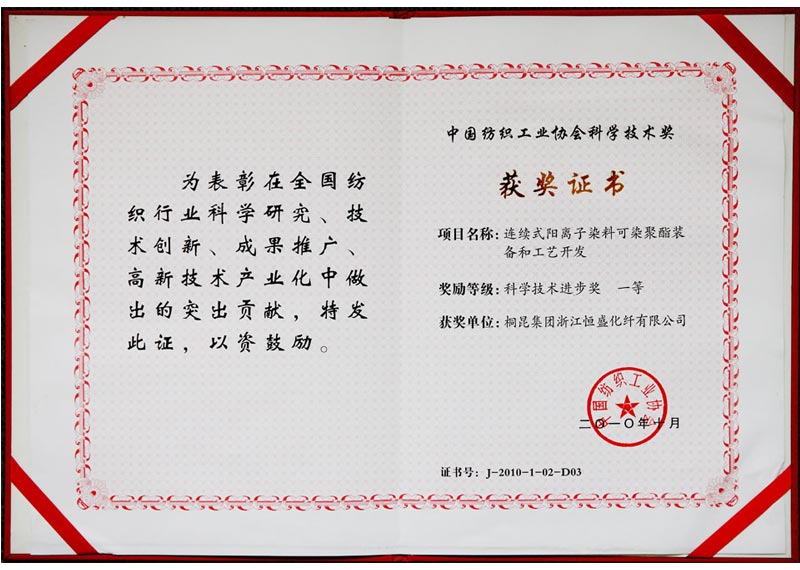 为表彰在全国纺
织行业科学研究、技
术创新、成果推广、
高新技术产业化中做
出的突出贡献，特发
此证，以资鼓励。
中国纺织工业协会科学技术奖
获奖证书
项目名称：连续式阳离子染料可染聚酯装
备和工艺开发
奖励等级：科学技术进步奖 一等
获奖单位：桐昆集团浙江恒盛化纤有限公司
中国纺织工业协会
二〇一〇年十月
证书号：J-2010-1-02-D03